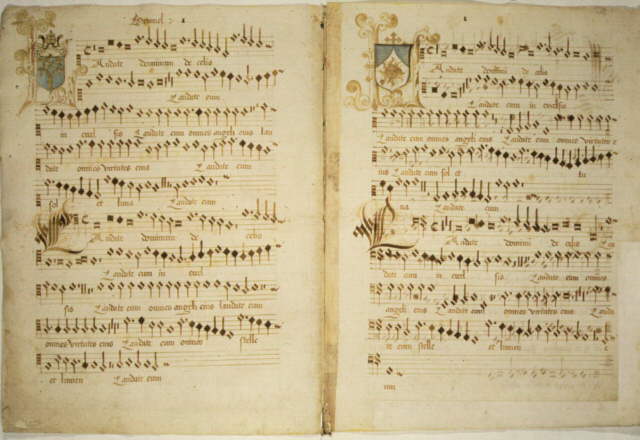 audate dominum de celis
Laudate eum
in excel sis Laudate eum omnes angeli eius lau
date omnes virtutes eius Laudate eum
sol et luna Laudate eum
Laudate dominum de celis
Laudate eum in excel
sis Laudate eum omnes angeli eius laudate eum
omnes virtutes eius Laudate eum omnes stelle
et lumen Laudate eum
audate dominum de celis
Laudate eum in excelsis
Laudate eum omnes angeli eius Laudate eum omnes virtutes e
ius Laudate eum sol et lu
na audate eum
Laudate dominum de celis Lau
date eum in excel sis Laudate eum omnes
angeli eius Laudate eum omnes virtutes eius Lauda
te eum stelle et lumen